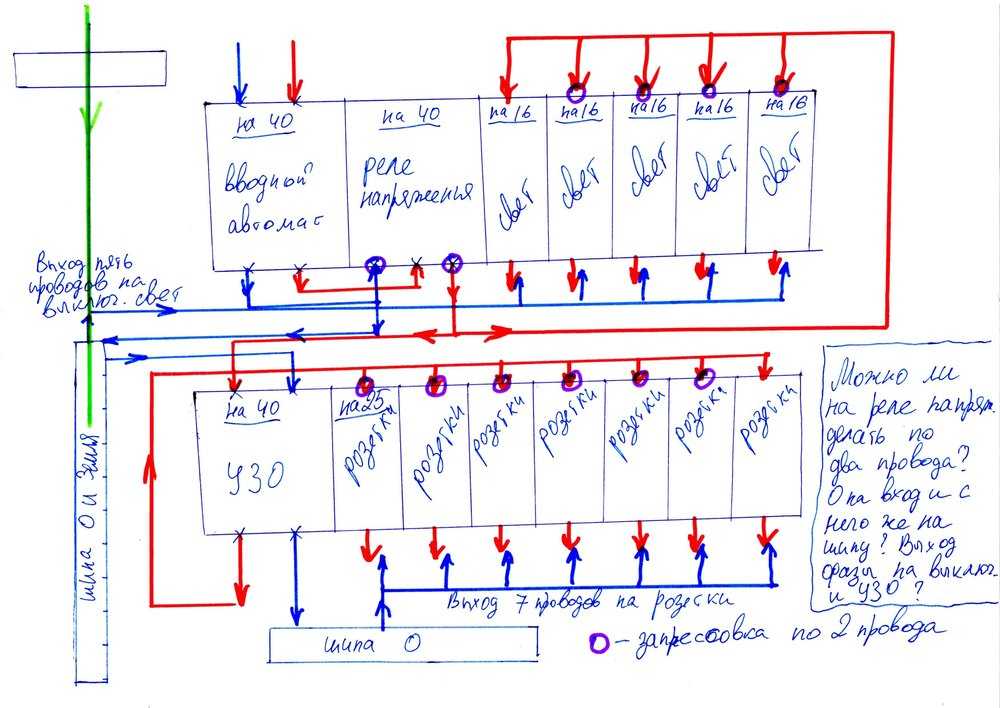 на 40
вводной
автомат
на 40
реле
напряжения
на 16
свет
на 16
свет
на 16
свет
на 16
свет
на 16
свет
Выход пять
проводов на
выключ. свет
шина 0 и Земля
на 40
УЗО
на 25
розетки
розетки
розетки
розетки
розетки
розетки
розетки
Выход 7 проводов на розетки
шина 0
- запрессовка по 2 провода
Можно ли
на реле напряж.
делать по
два провода?
0 на вход и с
него же на
шину? Выход
фазы на выключ.
и УЗО?